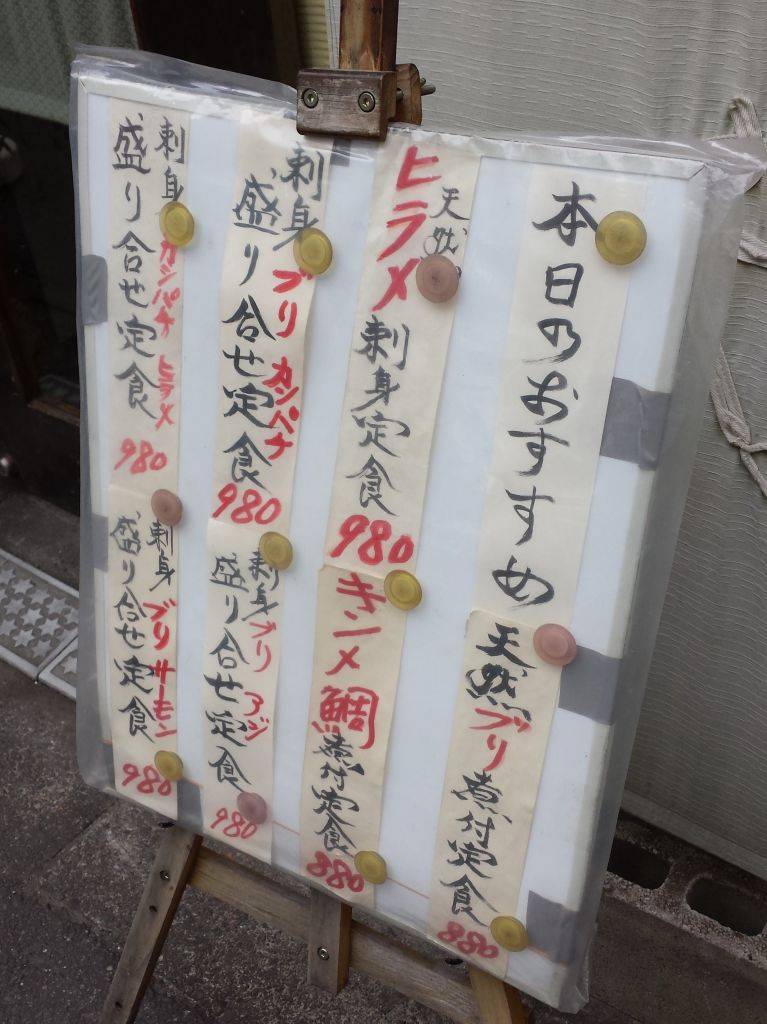 本日のおすすめ
天然ブリ煮付定食
880
天然
ヒラメ刺身定食
980
キンメ鯛煮付定食
880
刺身 ブリ カンパチ
盛り合せ定食
980
刺身 ブリ アジ
盛り合せ定食
980
刺身 カンパチ ヒラメ
盛り合せ定食
980
刺身 ブリ サーモン
盛り合せ定食
980